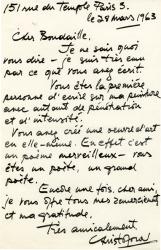 151 rue du Temple Paris 3.
le 28 mars 1963
Cher Bondaille.
Je ne sais quoi
vous dire - je suis très ému
par ce que vous avez écrit.
Vous êtes la première
personne d'écrire sur ma peinture
avec autant de pénétration
et d'intensité.
Vous avez créé une œuvre d'art
en elle-même. En effet c'est
un poème merveilleux - vous
êtes un poète, un grand
poète.
Encore une fois, cher ami,
je vous offre tous mes remerciements
et ma gratitude.
Très amicalement,